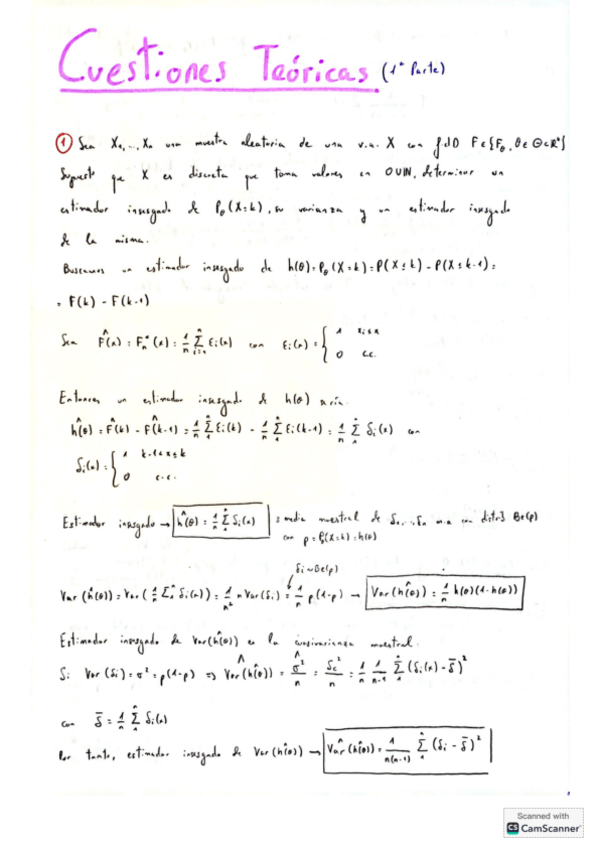 Cuestiones Teóricas (1ª Parte)
① Sea X₁,...,Xₙ una muestra aleatoria de una v.a. X con fdD F∈{F_θ, θ∈Θ⊂ℝᵏ}
Supuesto que X es discreta que toma valores en 0∪ℕ, determinar un
estimador insesgado de P_θ(X=k), su varianza y un estimador insesgado
de la misma.
Buscamos un estimador insesgado de h(θ)=P_θ(X=k)=P(X≤k)-P(X≤k-1)=
= F(k) - F(k-1)
Sea F̂(x) = Fₙ*(x) = 1/n Σᵢ₌₁ⁿ εᵢ(x) con εᵢ(x) = { 1 xᵢ≤x
0 c.c.
Entonces un estimador insesgado de h(θ) sería:
ĥ(θ) = F̂(k) - F̂(k-1) = 1/n Σ₁ⁿ εᵢ(k) - 1/n Σ₁ⁿ εᵢ(k-1) = 1/n Σ₁ⁿ δᵢ(x) con
δᵢ(x) = { 1 k-1<x≤k
0 c.c.
Estimador insesgado → ĥ(θ) = 1/n Σ₁ⁿ δᵢ(x) = media muestral de δ₁,...,δₙ m.a con distrib Be(p)
con p = P_θ(X=k) = h(θ)
δᵢ~Be(p)
Var(ĥ(θ)) = Var(1/n Σ₁ⁿ δᵢ(x)) = 1/n² n Var(δᵢ) = 1/n p(1-p) → Var(ĥ(θ)) = 1/n h(θ)(1-h(θ))
Estimador insesgado de Var(ĥ(θ)) es la cuasivarianza muestral.
Si Var(δᵢ) = σ² = p(1-p) ⇒ V̂ar(ĥ(θ)) = σ̂²/n = S_c²/n = 1/n 1/(n-1) Σ₁ⁿ (δᵢ(x) - δ̄)²
con δ̄ = 1/n Σ₁ⁿ δᵢ(x)
Por tanto, estimador insesgado de Var(ĥ(θ)) → V̂ar(ĥ(θ)) = 1/(n(n-1)) Σ₁ⁿ (δᵢ - δ̄)²
Scanned with
CS CamScanner